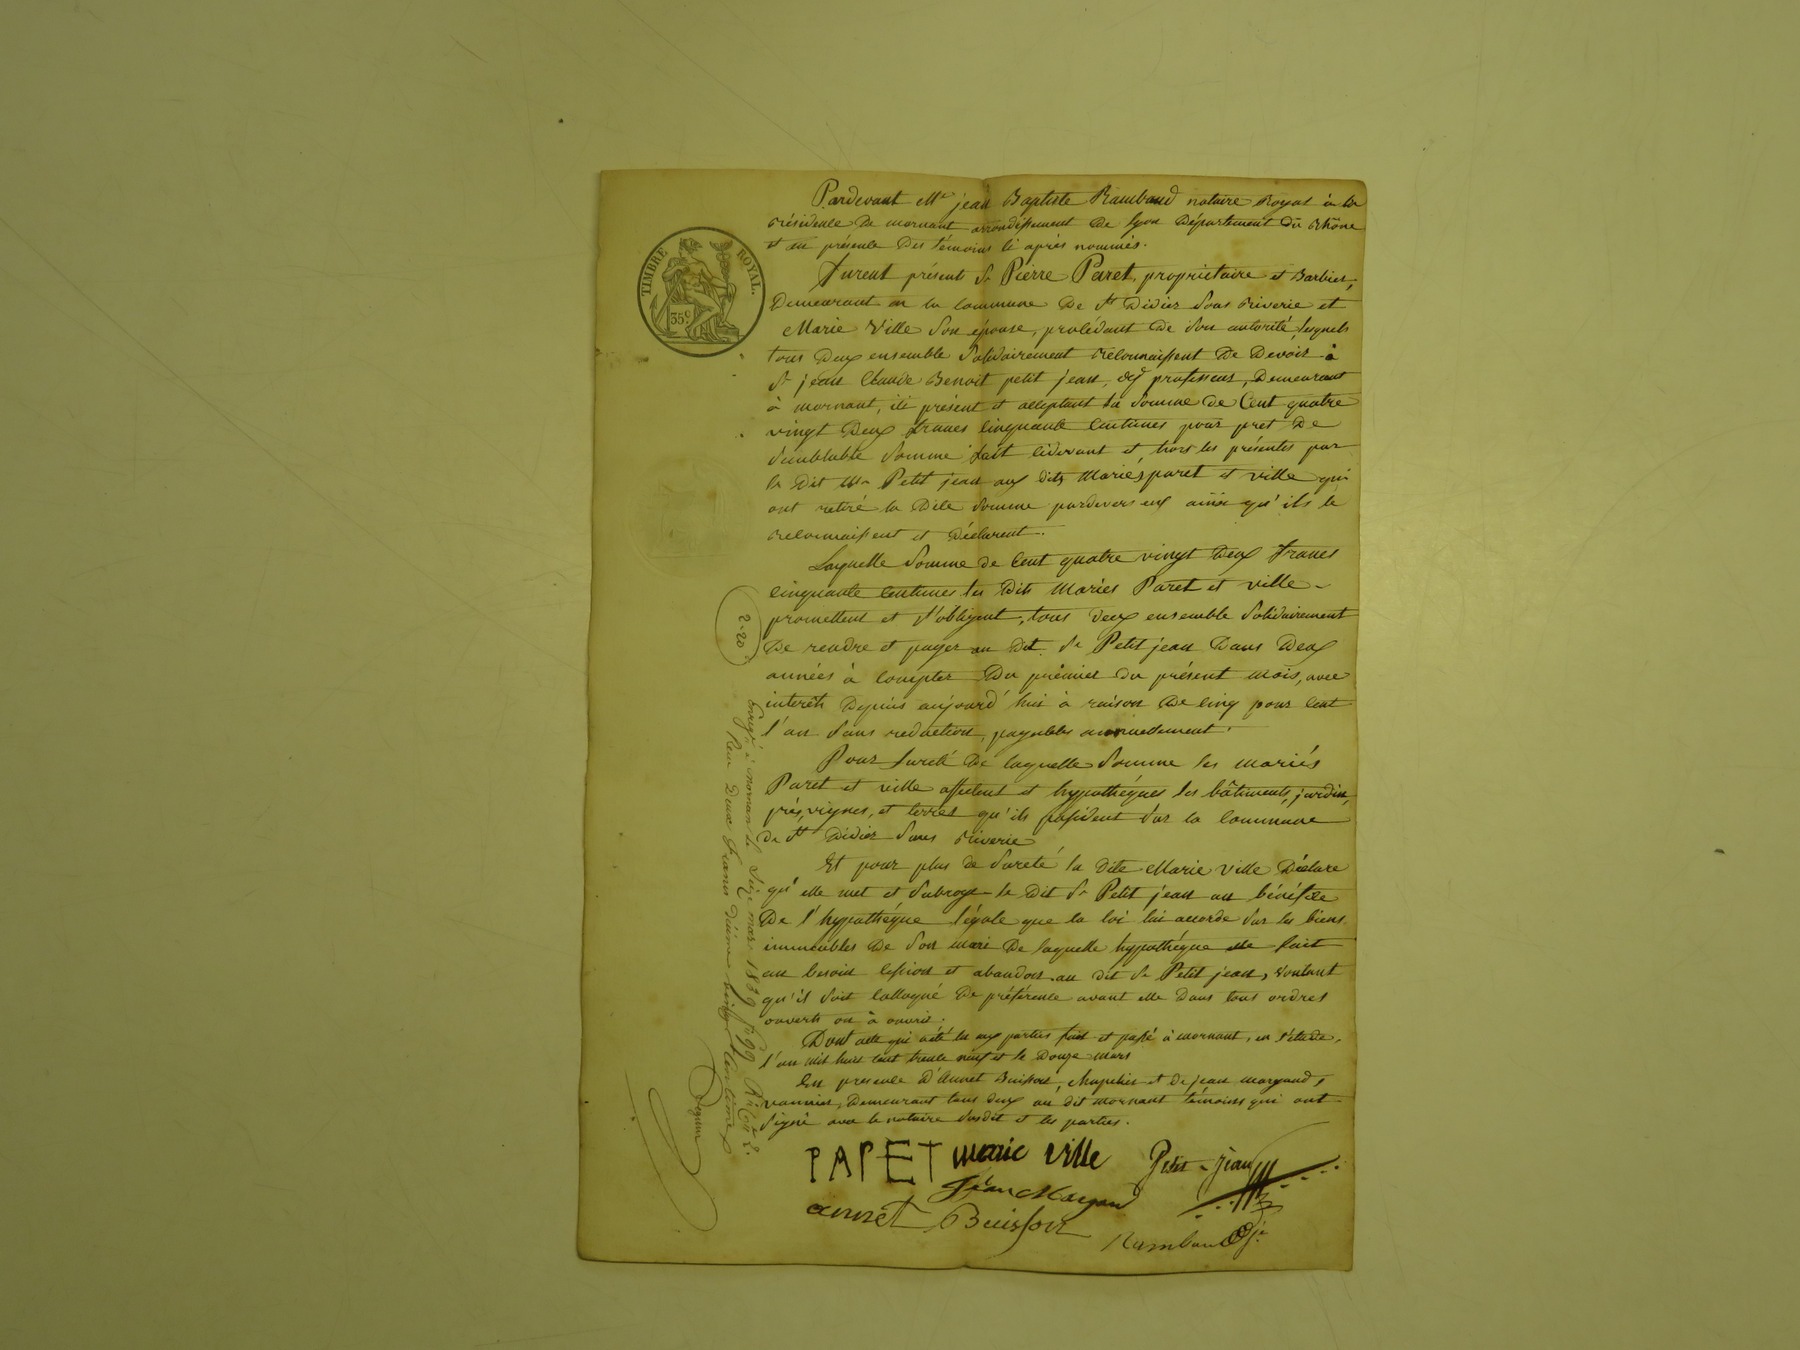 Pardevant Me jean Baptiste Rambaud notaire Royal à la
résidence de mornant arrondissement de lyon Département du Rhône
et en présence des témoins ci après nommés.
furent présents Sr Pierre Paret, propriétaire et Barbier,
Demeurant en la commune De St Didier Sous Riverie et
Marie Ville Son épouse, procédant De Son autorité, lesquels
tous Deux ensemble Solidairement reconnaissent De Devoir à
Sr jean Claude Benoit petit jean, professeur, Demeurant
à mornant, ici présent et acceptant la Somme de Cent quatre
vingt Deux francs cinquante Centimes pour pret De
Semblable Somme fait cidevant et hors les présentes par
le Dit Mr Petit jean aux dits Mariés paret et ville qui
ont retiré la Dite Somme pardevers eux ainsi qu'ils le
reconnaissent et Déclarent.
Laquelle Somme de Cent quatre vingt Deux francs
cinquante Centimes les Dits Mariés Paret et ville
promettent et s'obligent, tous Deux ensemble Solidairement
De rendre et payer au Dit Sr Petit jean Dans Deux
années à compter Du prémier du présent mois, avec
interêts Depuis aujourd'hui à raison De cinq pour Cent
l'an Sans reduction, payables annuellement.
Pour Sureté De laquelle Somme les mariés
Paret et ville affectent et hypothéques les bâtiments, jardin,
prés, vignes, et terres qu'ils possèdent Sur la commune
De St Didier Sous Riverie
Et pour plus de Sureté la dite Marie ville Déclare
qu'elle met et Subroge le Dit Sr Petit jean au bénéfice
De l'hypothéque légale que la loi lui accorde Sur les biens
immeubles De Son mari De laquelle hypothéque elle fait
au besoin cession et abandon au dit Sr Petit jean, voulant
qu'il Soit colloqué De préférence avant elle Dans tous ordres
ouverts ou à ouvrir.
Dont acte qui a été lu aux parties fait et passé à mornant, en l'étude,
l'an mil huit cent trente neuf et le Douze mars
En presence D'Annet Buisson, chapelier et De jean margand,
vannier, Demeurant tous Deux au dit mornant témoins qui ont
Signé avec le notaire Susdit et les parties.
PAPET marie ville Petit-Jean
Jéan Margand
annet Buisson
Rambaud
TIMBRE ROYAL.
35c.
2-20
Enregé à mornant le mars 1839 fo 99 Ro Ce 2.
Reçu Deux francs décime vingt Centimes